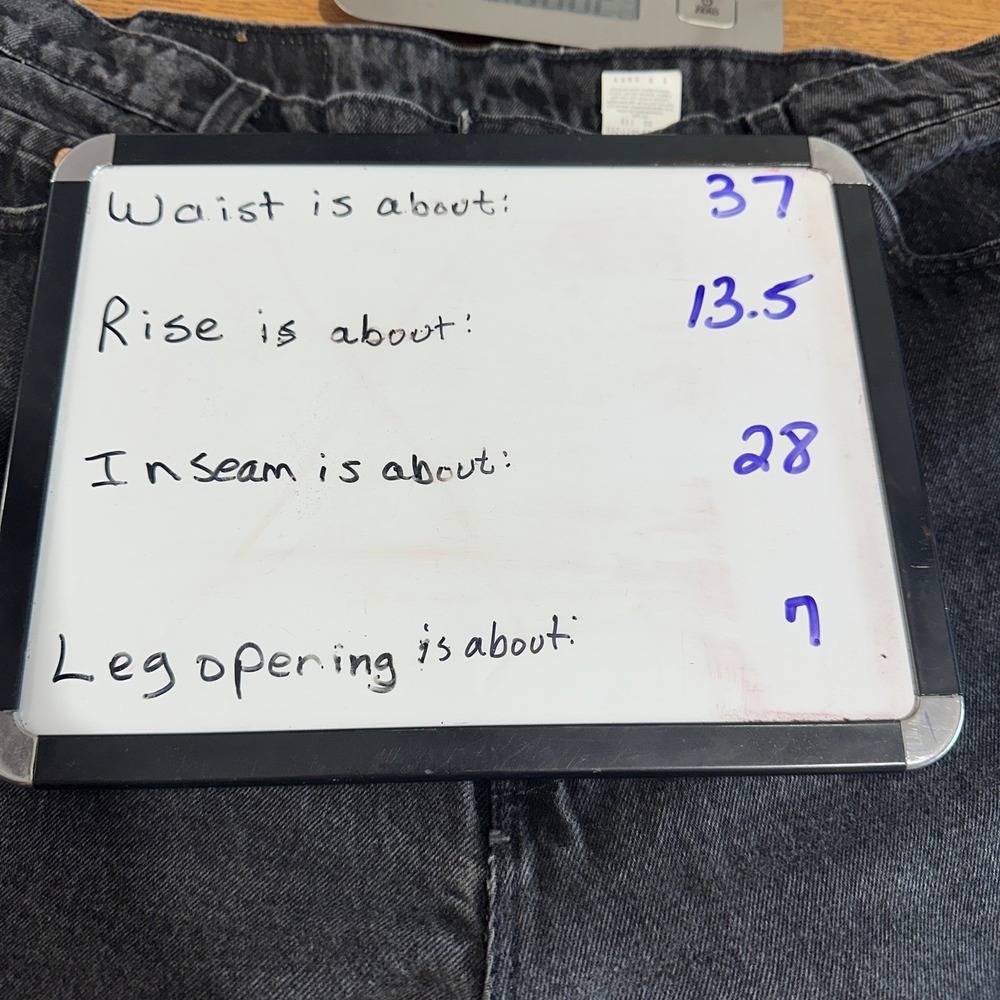 ZERO
Waist is about: 37
Rise is about: 13.5
Inseam is about: 28
Leg opening is about: 7